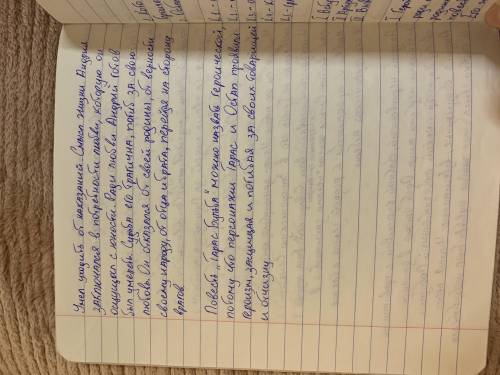 Умел уходить от наказаний. Смысл жизни Андрия
заключался в потребности любви, которую он
ощущал с юности. Ради любви Андрий готов
был умереть. Судьба его трагична, погиб за свою
любовь. Он отказался от своей родины, от верности
своему народу, от отца и брата, перейдя на сторону
врагов.
Повесть "Тарас Бульба" можно назвать героической
потому что персонажи Тарас и Остап проявили
героизм, защищая и погибая за своих товарищей
и отчизну